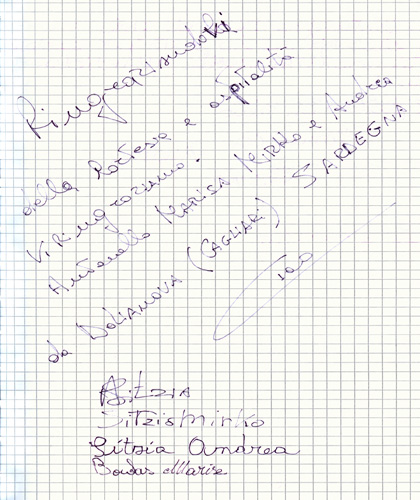 Ringraziandoki
della cortesia e ospitalità
Vi Ringraziamo.
Antonello MARISA MIRKO e Andrea
da DOLIANOVA (CAGLIARI) SARDEGNA
Ciao
Sitzia
Sitzia Mirko
Sitzia Andrea
Marisa